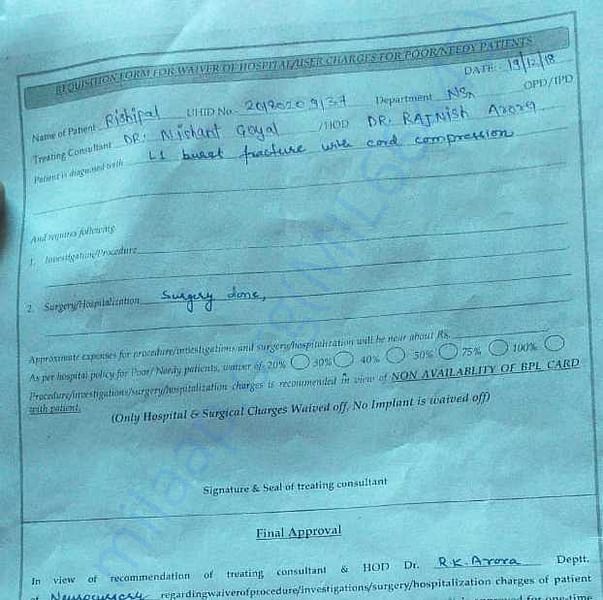 REQUISITION FORM FOR WAIVER OF HOSPITAL/USER CHARGES FOR POOR/NEEDY PATIENTS
DATE: 19/12/18
Name of Patient Rishipal UHID No. Department NSx OPD/IPD
Treating Consultant DR. Nishant Goyal /HOD DR. RAJNISH Arora
Patient is diagnosed with L1 burst fracture with cord compression
And requires following:
1. Investigation/Procedure
2. Surgery/Hospitalization Surgery done,
Approximate expenses for procedure/investigations and surgery/hospitalization will be near about Rs.
As per hospital policy for Poor/ Needy patients, waiver of 20% 30% 40% 50% 75% 100%
Procedure/investigations/surgery/hospitalization charges is recommended in view of NON AVAILABLITY OF BPL CARD
with patient.
(Only Hospital & Surgical Charges Waived off, No Implant is waived off)
Signature & Seal of treating consultant
Final Approval
In view of recommendation of treating consultant & HOD Dr. R.K. Arora Deptt.
of Neurosurgery regardingwaiverofprocedure/investigations/surgery/hospitalization charges of patient
approved for one-time